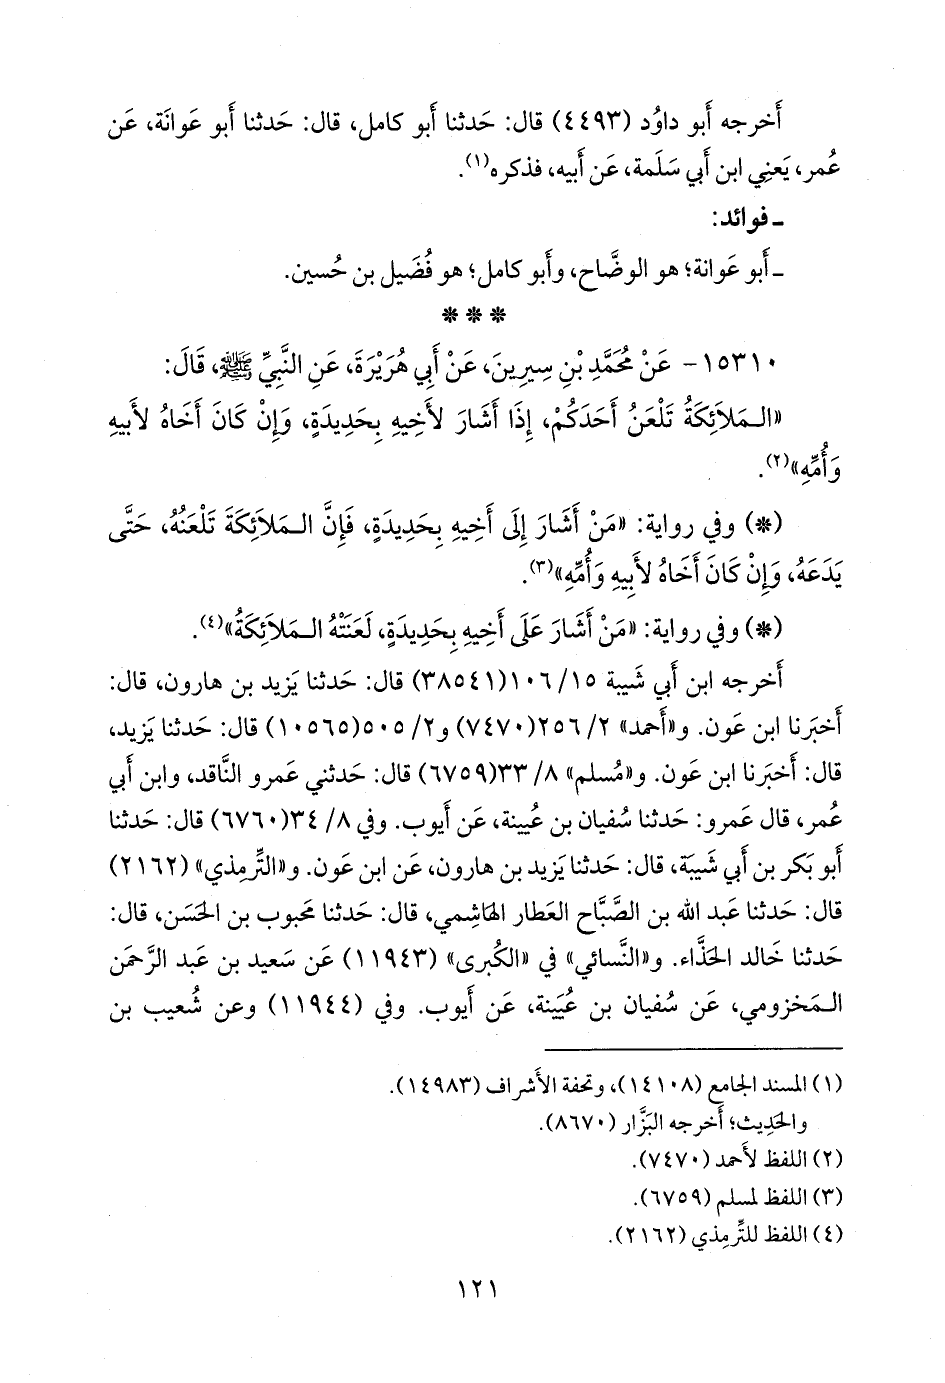 أَخرجه أَبو داوُد (٤٤٩٣) قال: حَدثنا أَبو كامل، قال: حَدثنا أَبو عَوانَة، عَن
عُمر، يَعنِي ابن أَبي سَلَمة، عَن أَبيه، فذكره(١).
ـ فوائد:
ـ أَبو عَوانة؛ هو الوضَّاح، وأَبو كامل؛ هو فُضَيل بن حُسين.
* * *
١٥٣١٠ - عَنْ مُحَمَّدِ بْنِ سِيرِينَ، عَنْ أَبِي هُرَيْرَةَ، عَنِ النَّبِيِّ ﷺ، قَالَ:
«الـمَلاَئِكَةُ تَلْعَنُ أَحَدَكُمْ، إِذَا أَشَارَ لأَخِيهِ بِحَدِيدَةٍ، وَإِنْ كَانَ أَخَاهُ لأَبِيهِ
وَأُمِّهِ»(٢).
(*) وفي رواية: «مَنْ أَشَارَ إِلَى أَخِيهِ بِحَدِيدَةٍ، فَإِنَّ الـمَلاَئِكَةَ تَلْعَنُهُ، حَتَّى
يَدَعَهُ، وَإِنْ كَانَ أَخَاهُ لأَبِيهِ وَأُمِّهِ»(٣).
(*) وفي رواية: «مَنْ أَشَارَ عَلَى أَخِيهِ بِحَدِيدَةٍ، لَعَنَتْهُ الـمَلاَئِكَةُ»(٤).
أَخرجه ابن أَبي شَيبة ١٥/ ١٠٦(٣٨٥٤١) قال: حَدثنا يَزيد بن هارون، قال:
أَخبَرنا ابن عَون. و«أَحمد» ٢/ ٢٥٦(٧٤٧٠) و٢/ ٥٠٥(١٠٥٦٥) قال: حَدثنا يَزيد،
قال: أَخبَرنا ابن عَون. و«مُسلم» ٨/ ٣٣(٦٧٥٩) قال: حَدثني عَمرو النَّاقد، وابن أَبي
عُمر، قال عَمرو: حَدثنا سُفيان بن عُيينة، عَن أَيوب. وفي ٨/ ٣٤(٦٧٦٠) قال: حَدثنا
أَبو بَكر بن أَبي شَيبَة، قال: حَدثنا يَزيد بن هارون، عَن ابن عَون. و«التِّرمِذي» (٢١٦٢)
قال: حَدثنا عَبد الله بن الصَّبَّاح العَطار الهاشِمي، قال: حَدثنا مَحبوب بن الحَسَن، قال:
حَدثنا خالد الحَذَّاء. و«النَّسائي» في «الكُبرى» (١١٩٤٣) عَن سَعيد بن عَبد الرَّحمَن
الـمَخزومي، عَن سُفيان بن عُيَينة، عَن أَيوب. وفي (١١٩٤٤) وعن شُعيب بن
(١) المسند الجامع (١٤١٠٨)، وتحفة الأَشراف (١٤٩٨٣).
والحَدِيث؛ أَخرجه البَزَّار (٨٦٧٠).
(٢) اللفظ لأَحمد (٧٤٧٠).
(٣) اللفظ لمسلم (٦٧٥٩).
(٤) اللفظ للتِّرمِذي (٢١٦٢).
١٢١